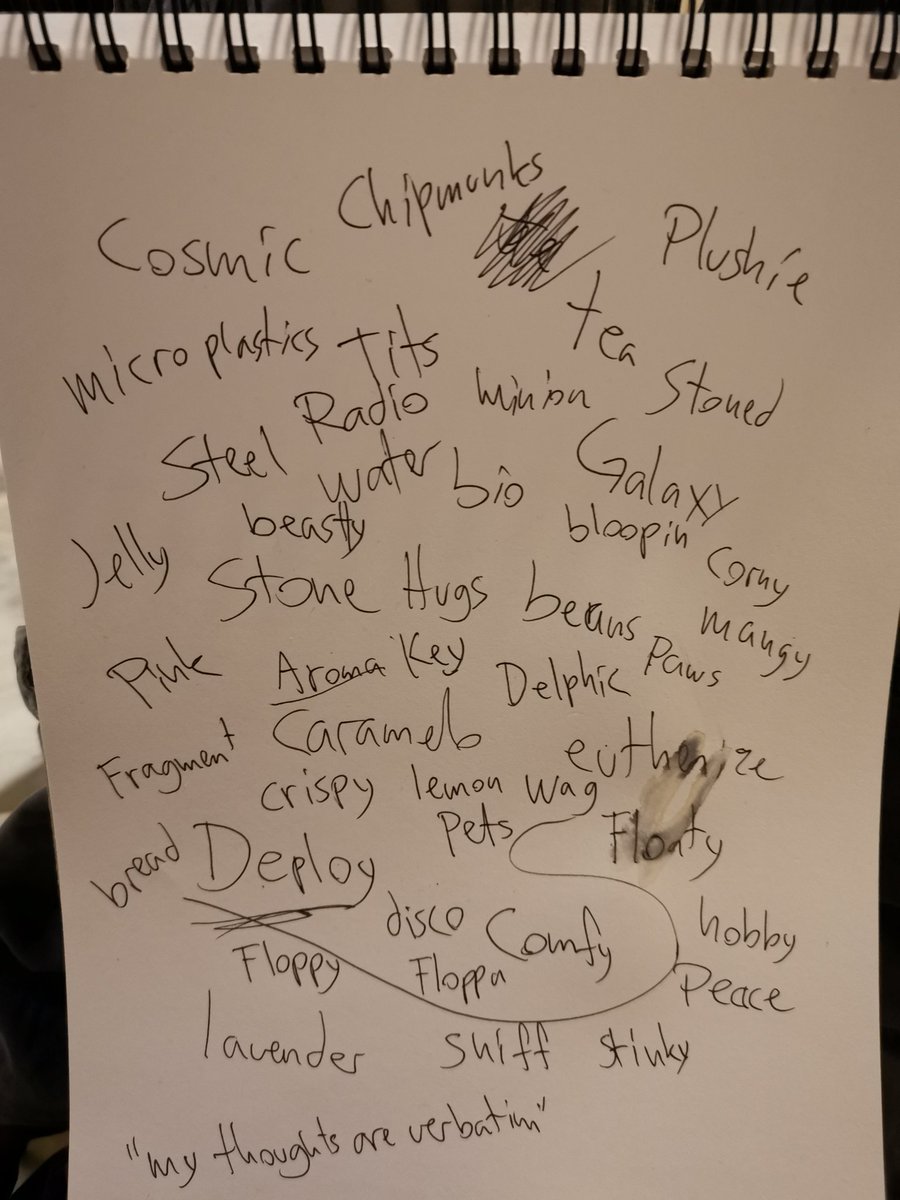 Cosmic Chipmunks
Plushie
tea
microplastics Tits
Radio minion Stoned
Steel water bio Galaxy
beasty bloopin
Jelly Stone Hugs beans Corny
mangy
Pink Aroma Key Delphic Paws
Fragment Caramel euthenize
crispy lemon wag
bread Deploy Pets Floaty
disco Comfy hobby
Floppy Floppa Peace
lavender sniff stinky
"my thoughts are verbatim"